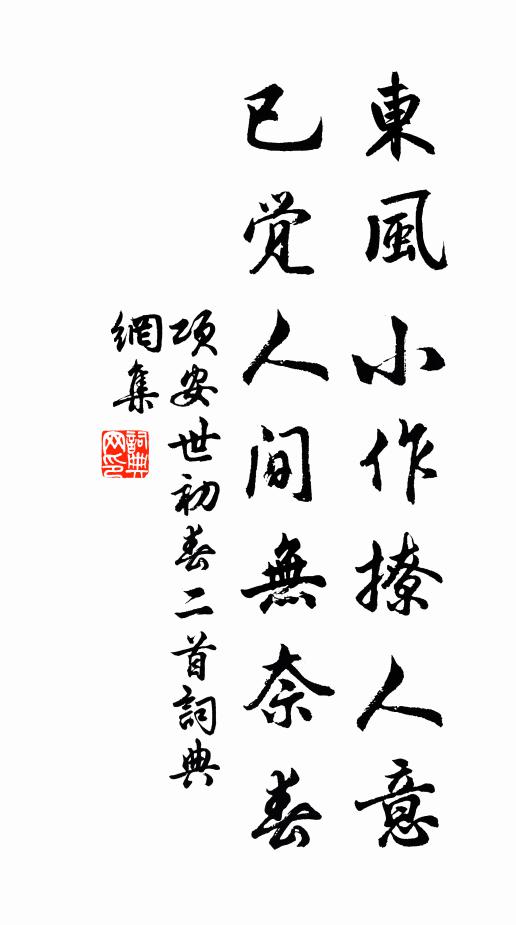 東風小作撩人意
已覚人间無奈春
项安世初春二首詞典
網集
詞典
网印